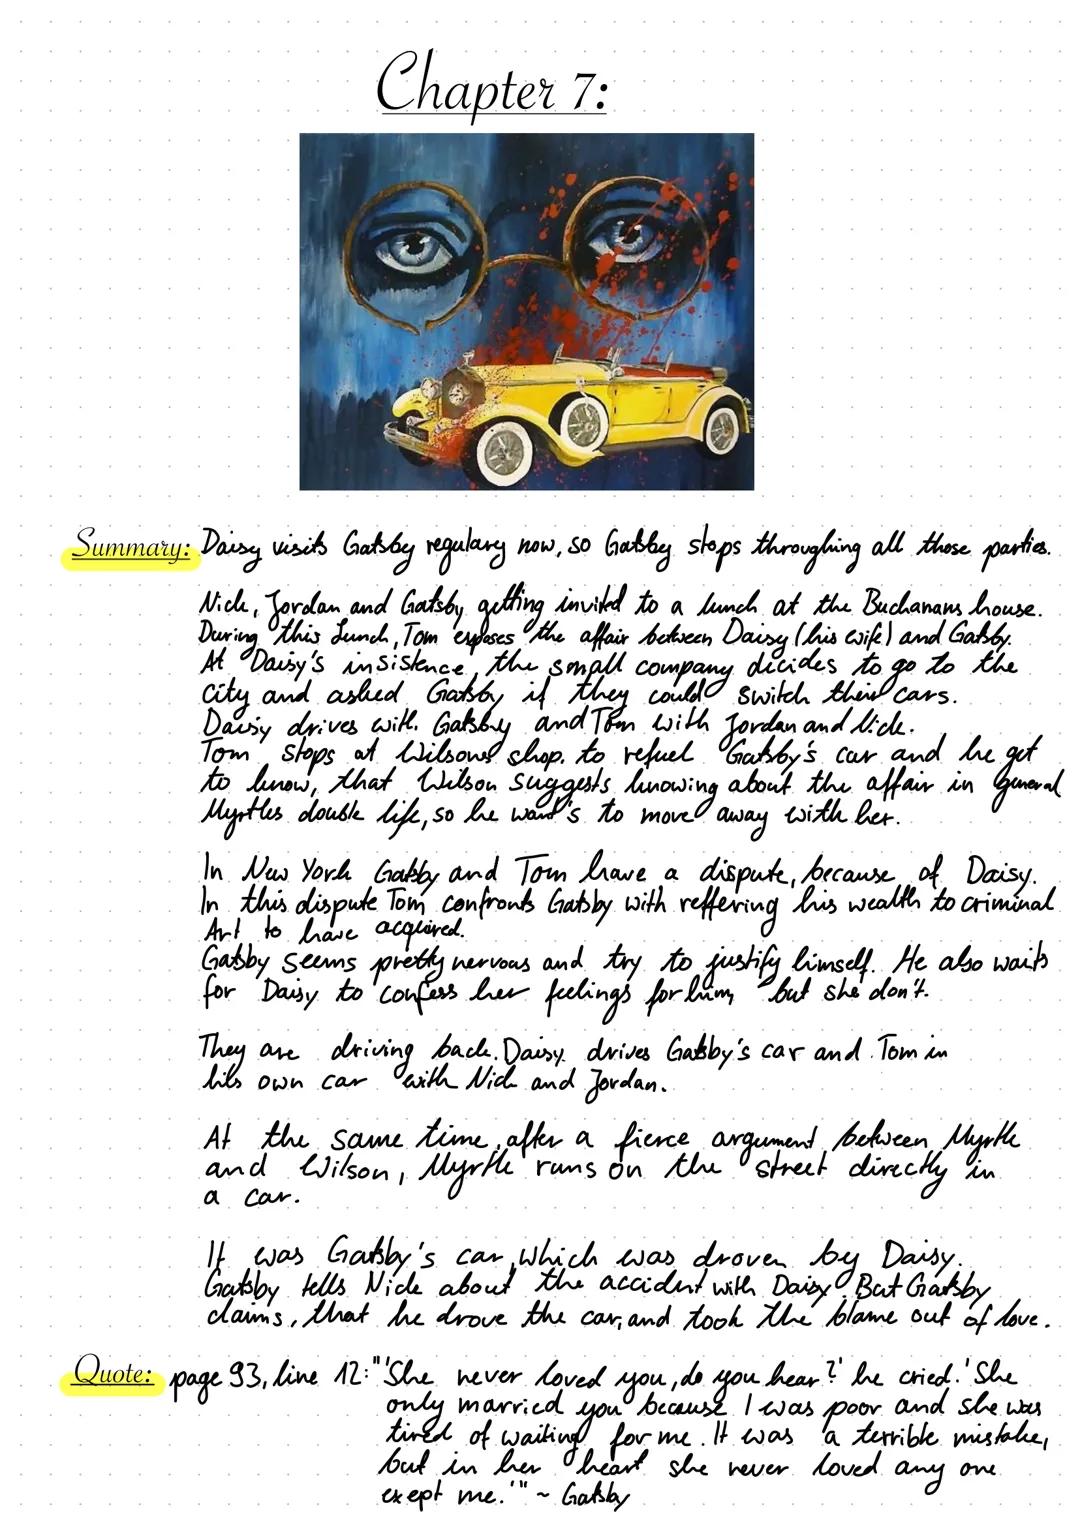 Chapter 7:
Summary: Daisy visits Gatsby regulary now, so Gatsby stops throughing all those parties.
Nick, Jordan and Gatsby getting invited to a lunch at the Buchanans house.
During this Lunch, Tom exposes the affair between Daisy (his wife) and Gatsby.
At Daisy's insistence, the small company dicides to go to the
city and asked Gatsby if they could switch their cars.
Daisy drives with Gatsby and Tom with Jordan and Nick.
Tom stops at Wilsons shop to refuel Gatsby's car and he got
to know, that Wilson suggests knowing about the affair in general
Myrtles double life, so he want's to move away with her.
In New York Gatsby and Tom have a dispute, because of Daisy.
In this dispute Tom confronts Gatsby with reffering his wealth to criminal
Art to have acquired.
Gatsby seems pretty nervous and try to justify himself. He also waits
for Daisy to confess her feelings for him, but she don't.
They are driving back. Daisy drives Gatsby's car and Tom in
his own car with Nick and Jordan.
At the same time, after a fierce argument between Myrtle
and Wilson, Myrtle runs on the street directly in
a car.
It was Gatsby's car, which was droven by Daisy.
Gatsby tells Nick about the accident with Daisy. But Gatsby
claims, that he drove the car, and took the blame out of love.
Quote: page 93, line 12: "'She never loved you, do you hear?' he cried. 'She
only married you because I was poor and she was
tired of waiting for me. It was a terrible mistake,
but in her heart she never loved any one
exept me.'" ~ Gatsby